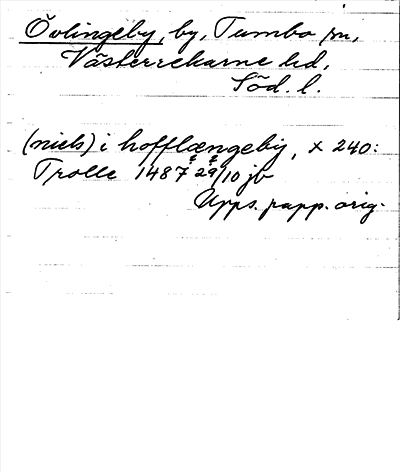 Övlingeby, by, Tumbo sn,
Västerrekarne hd,
Söd. l.
(niels) i hofflængeby, x 240:
Trolle 1487 29/10 jb
Upps. papp. orig.